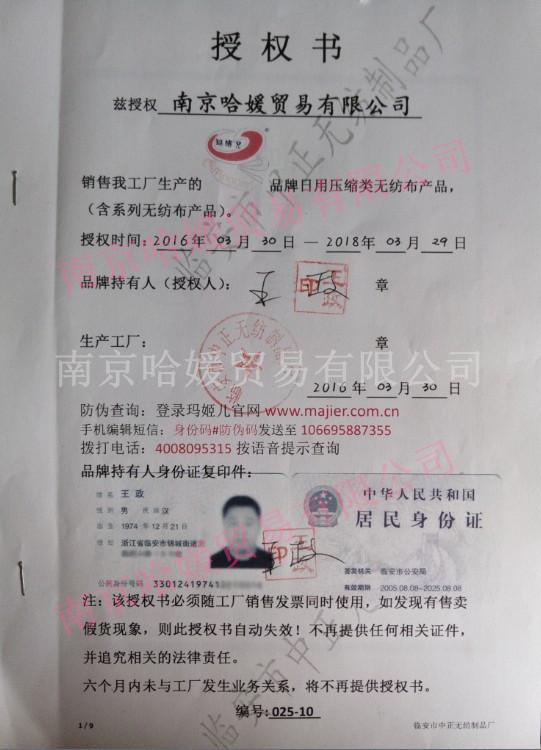 授权书
兹授权 南京哈媛贸易有限公司
销售我工厂生产的 品牌日用压缩类无纺布产品，
（含系列无纺布产品）。
授权时间：2016年 03月 30日 — 2018年 03月 29日
品牌持有人（授权人）： 王政 章
王政印
生产工厂： 章
临安市中正无纺制品厂
2016年 03月 30日
防伪查询：登录玛姬儿官网 www.majier.com.cn
手机编辑短信：身份码#防伪码发送至 106695887355
拨打电话：4008095315 按语音提示查询
品牌持有人身份证复印件：
姓名 王政
性别 男 民族 汉
出生 1974年12月21日
住址 浙江省临安市锦城街道
公民身份号码 33012419741
中华人民共和国
居民身份证
签发机关 临安市公安局
有效期限 2005.08.08-2025.08.08
注：该授权书必须随工厂销售发票同时使用，如发现有售卖
假货现象，则此授权书自动失效！不再提供任何相关证件，
并追究相关的法律责任。
六个月内未与工厂发生业务关系，将不再提供授权书。
编号：025-10
1 / 9
临安市中正无纺制品厂
南京哈媛贸易有限公司
南京哈媛贸易有限公司
南京哈媛贸易有限公司
临安市中正无纺制品厂
临安市中正无纺制品厂